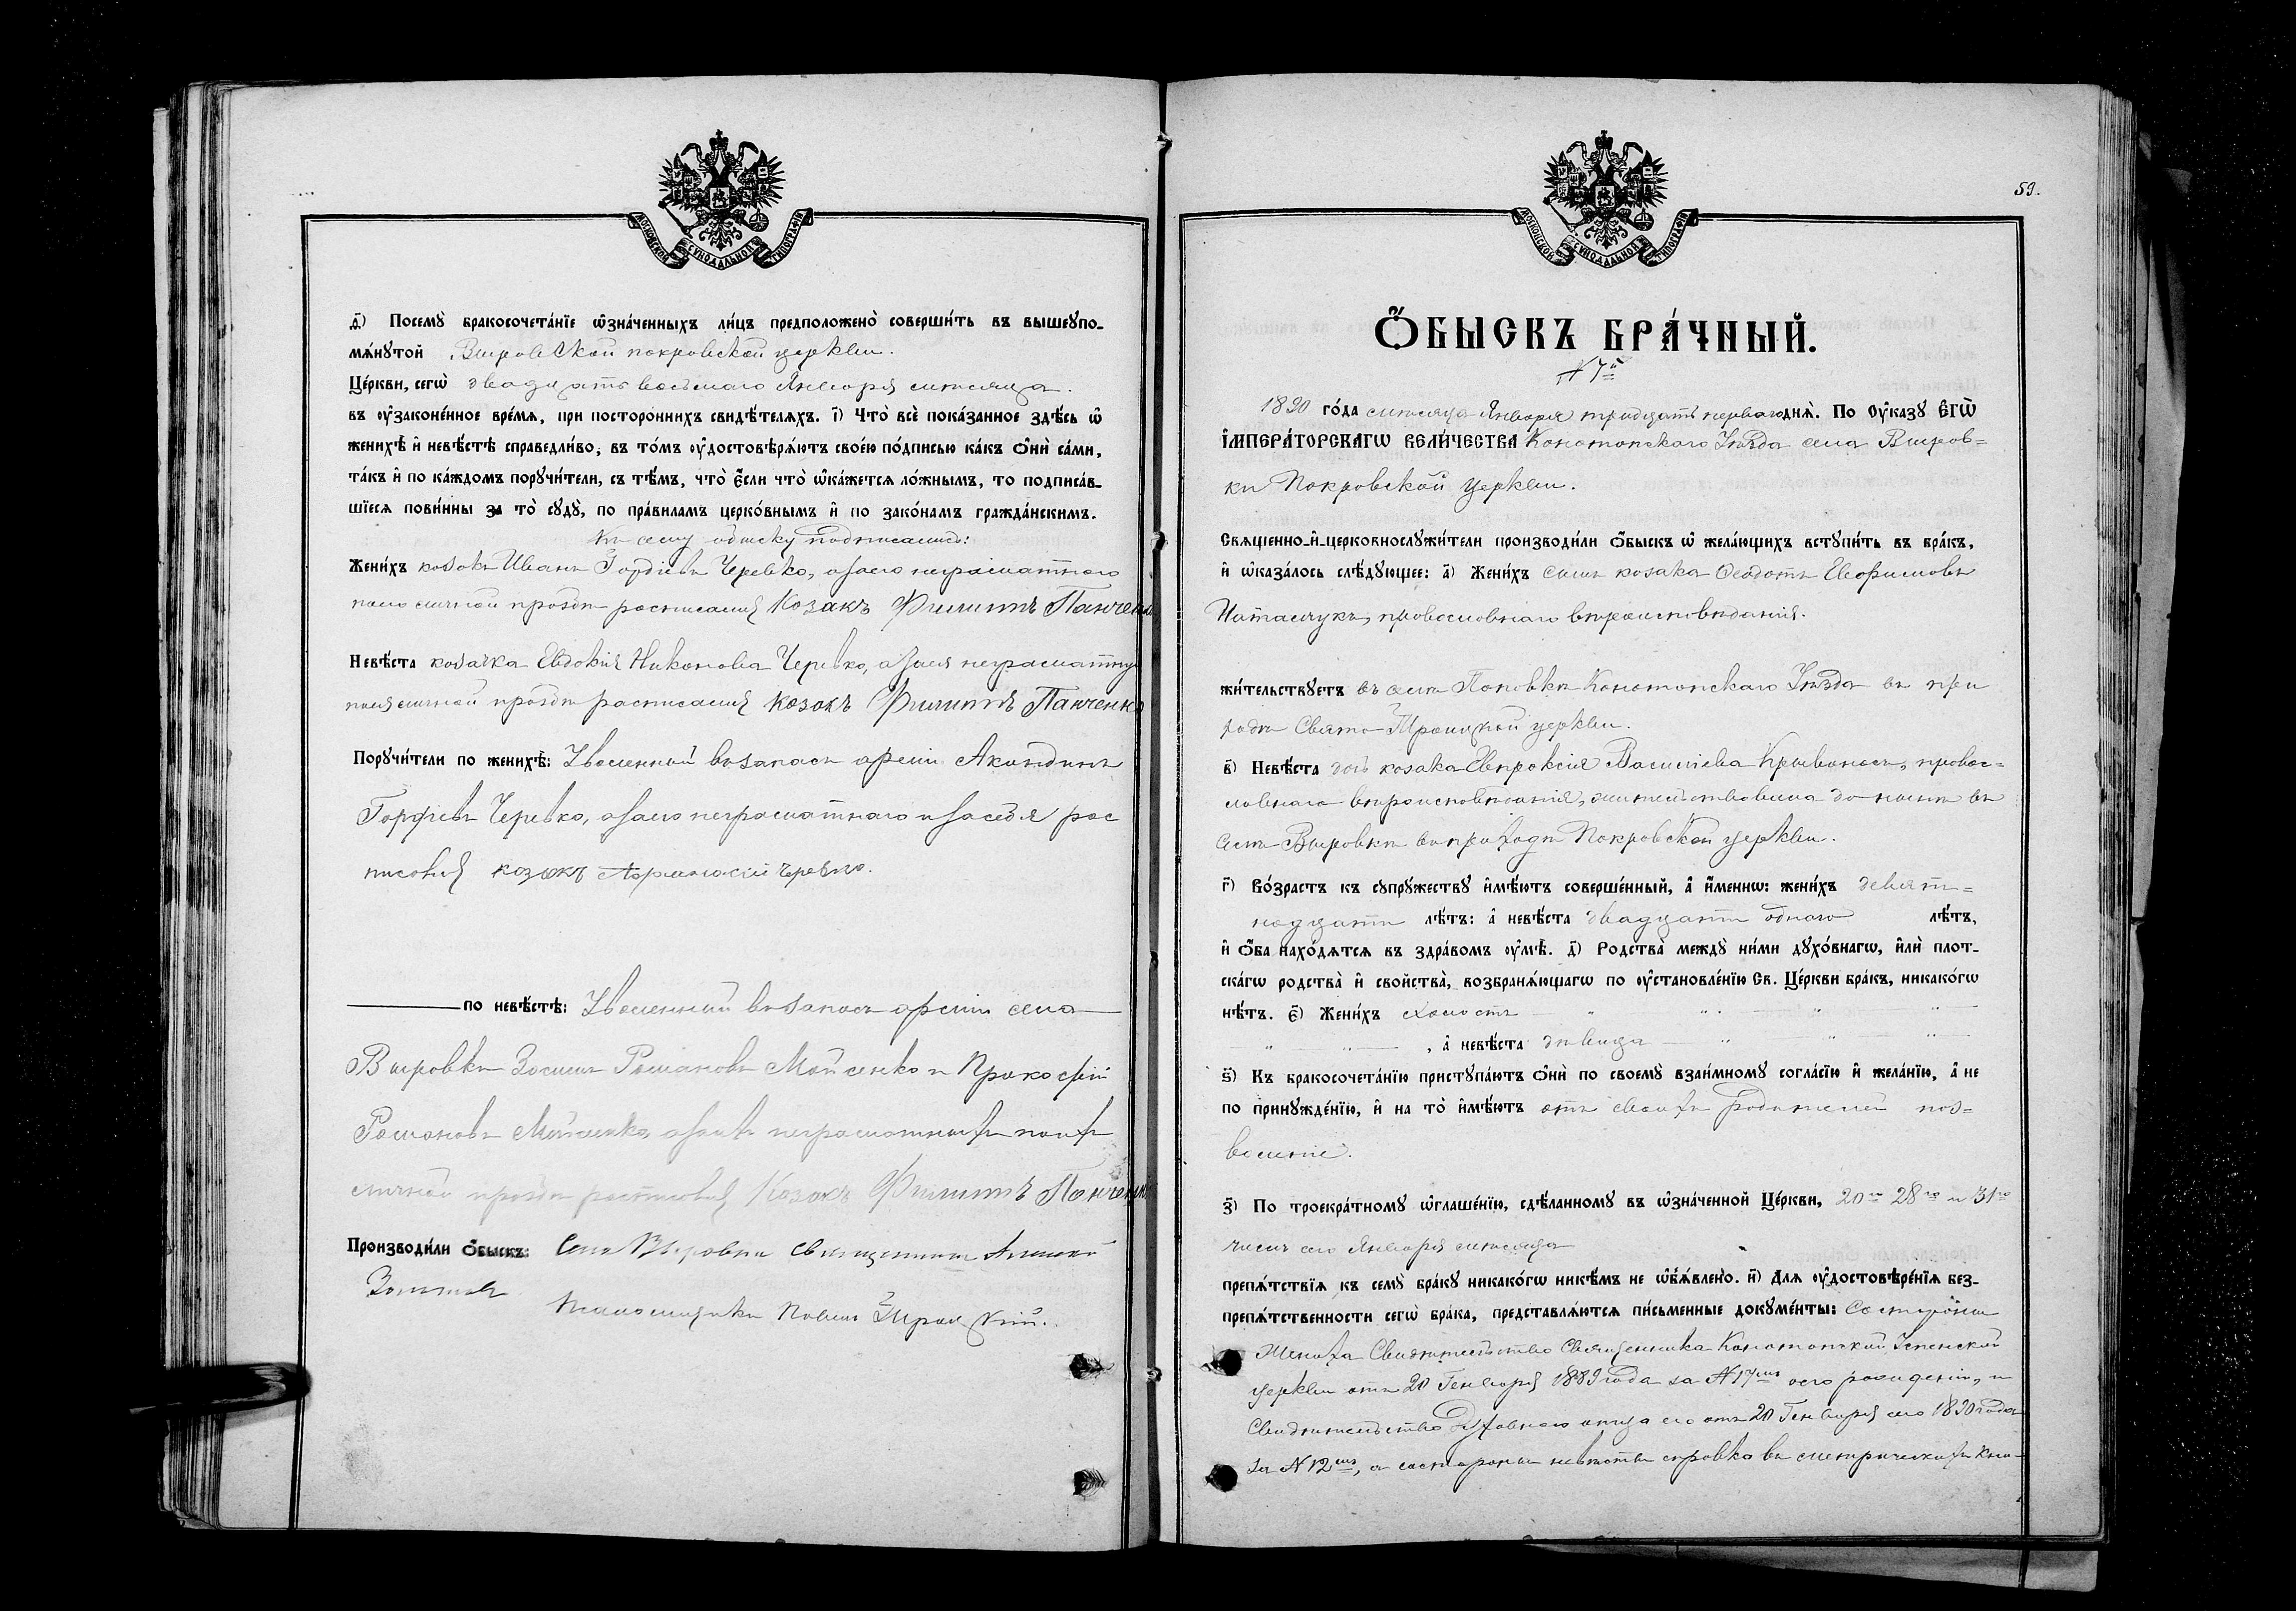 МОСКОВСКОЙ СУНОДАЛЬНОЙ ТИПОГРАФІИ
д҃) Посемꙋ̀ бракосочета́нїе ѡ҆зна́ченныхъ ли́цъ предположено̀ соверши́ть въ вышеꙋпо-
мѧ́нꙋтой Вировской покровской церкви.
Це́ркви, сегѡ̀ двадцать восьмаго Января мѣсяца.
въ оу҆законе́нное вре́мѧ, при посторо́ннихъ свидѣ́телѧхъ. і҃) Что̀ всѐ пока́занное здѣ́сь ѡ҆
женихѣ̀ и҆ невѣ́стѣ справедли́во, въ то́мъ оу҆достовѣрѧ́ютъ свое́ю по́дписью ка́къ Ѻ҆нѝ са́ми,
та́къ и҆ по ка́ждомъ порꙋчи́тели, съ тѣ́мъ, что̀ є҆́сли что̀ ѡ҆ка́жетсѧ ло́жнымъ, то подписа́в-
шїесѧ пови́нны за то̀ сꙋдꙋ̀, по пра́виламъ церко́внымъ и҆ по зако́намъ гражда́нскимъ.
Къ сему обыску подписались:
Жени́хъ козакъ Иванъ Гордіевъ Черевко, а заего неграматнаго
поего личной прозбѣ росписался Козакъ Филиппъ Панченко
Невѣ́ста козачка Евдокія Никонова Черевко, а заея неграматную
поея личной прозбѣ росписался Козакъ Филиппъ Панченко
Порꙋчи́тели по женихѣ̀: Уволенный възапасъ арміи Акиндинъ
Гордіевъ Черевко, а заего неграматнаго и засебя рос
писовся козакъ Черевко.
по невѣ́стѣ: Уволенный възапасъ арміи села
Вировки Зосимъ Романовъ Мойсенко и Прокофій
Романовъ Мойсенко, а заихъ неграматныхъ поихъ
личной прозбѣ росписовся Козакъ Филиппъ Панченко
Производи́ли ѻ҆́быскъ: Села Вировки Священникъ Алексій
Псаломщикъ Павелъ
59.
МОСКОВСКОЙ СУНОДАЛЬНОЙ ТИПОГРАФІИ
Ѻ҆́БЫСКЪ БРА́ЧНЫЙ.
№ 7й
1890 го́да мѣсяца Января тридцать перваго днѧ̀. По Оу҆ка́зꙋ Є҆ГѠ̀
І҆МПЕРА́ТОРСКАГѠ ВЕЛИ́ЧЕСТВА Конотопскаго Уѣзда села Виров=
ки Покровской церкви.
Свѧще́нно-и҆-церковнослꙋжи́тели производи́ли ѻ҆́быскъ ѡ҆ жела́ющихъ встꙋпи́ть въ бра́къ,
и҆ ѡ҆каза́лось слѣ́дꙋющее: а҃) Жени́хъ сынъ козака Ѳеодотъ Евфимовъ
православнаго вѣроисповѣданія.
жи́тельствꙋетъ въ селѣ Поповкѣ Конотопскаго Уѣзда въ при
ходѣ Свято-Троицкой церкви.
в҃) Невѣ́ста дочь козака Евпраксія Василіева Кривоносъ, правос=
лавнаго вѣроисповѣданія, жительствовала до нынѣ въ
селѣ Вировкѣ въ приходѣ Покровской церкви.
г҃) Во́зрастъ къ сꙋпрꙋ́жествꙋ и҆мѣ́ютъ соверше́нный, а҆ и҆́меннѡ: жени́хъ девят=
надцати лѣ́тъ: а҆ невѣ́ста двадцати одного лѣ́тъ,
и҆ ѻ҆́ба нахо́дѧтсѧ въ здра́вомъ оу҆мѣ̀. д҃) Родства̀ междꙋ̀ ни́ми дꙋхо́внагѡ, и҆лѝ плот-
ска́гѡ родства̀ и҆ свойства̀, возбранѧ́ющагѡ по оу҆становле́нїю Св. Це́ркви бра́къ, никако́гѡ
нѣ́тъ. є҃) Жени́хъ холостъ
, а҆ невѣ́ста дѣвица
ѕ҃) Къ бракосочета́нїю пристꙋпа́ютъ Ѻ҆нѝ по своемꙋ̀ взаи́мномꙋ согла́сїю и҆ жела́нїю, а҆ не
по принꙋжде́нїю, и҆ на то̀ и҆мѣ́ютъ отъ своихъ родителей поз=
воленіе.
з҃) По троекра́тномꙋ ѡ҆глаше́нїю, сдѣ́ланномꙋ въ ѡ҆зна́ченной Це́ркви, 20го 28го и 31го
чиселъ сего Января мѣсяца
препѧ́тствїѧ къ семꙋ̀ бра́кꙋ никако́гѡ никѣ́мъ не ѡ҆б̾ѧ́влено. и҃) Длѧ оу҆достовѣре́нїѧ без-
препѧ́тственности сегѡ̀ бра́ка, представлѧ́ютсѧ пи́сьменные докꙋме́нты: Со стороны
Жениха Свидѣтельство Священника Конотопской Успенской
церкви отъ 20 Генваря 1889 года за № 17мъ оего рожденіи, и
Свидѣтельство Духовнаго отца его отъ 20 Генваря сего 1890 года
за № 12мъ, а состороны невѣсты справка въ метрическихъ кни-